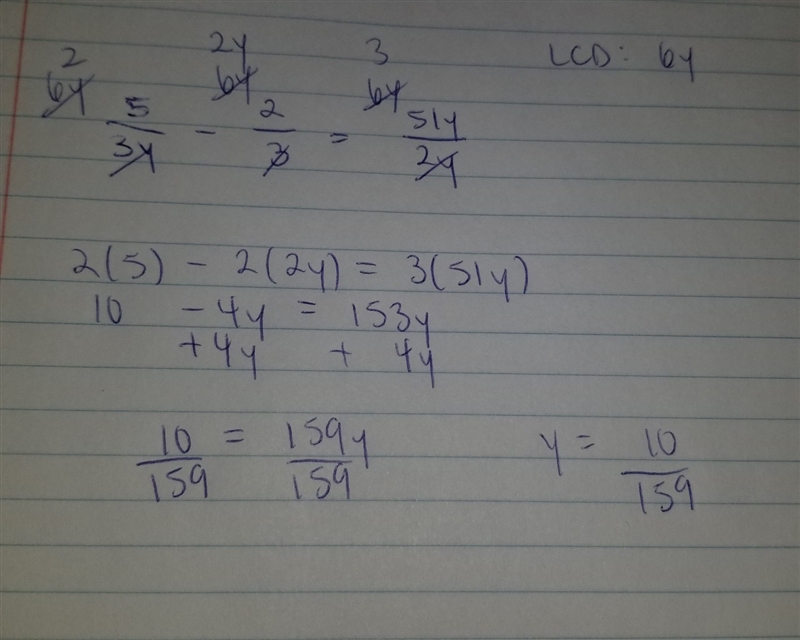 2 2y 3 LCD: 6y
6y 6y 6y
5/3y - 2/3 = 51y/2y
2(5) - 2(2y) = 3(51y)
10 -4y = 153y
+4y + 4y
10/159 = 159y/159 y = 10/159